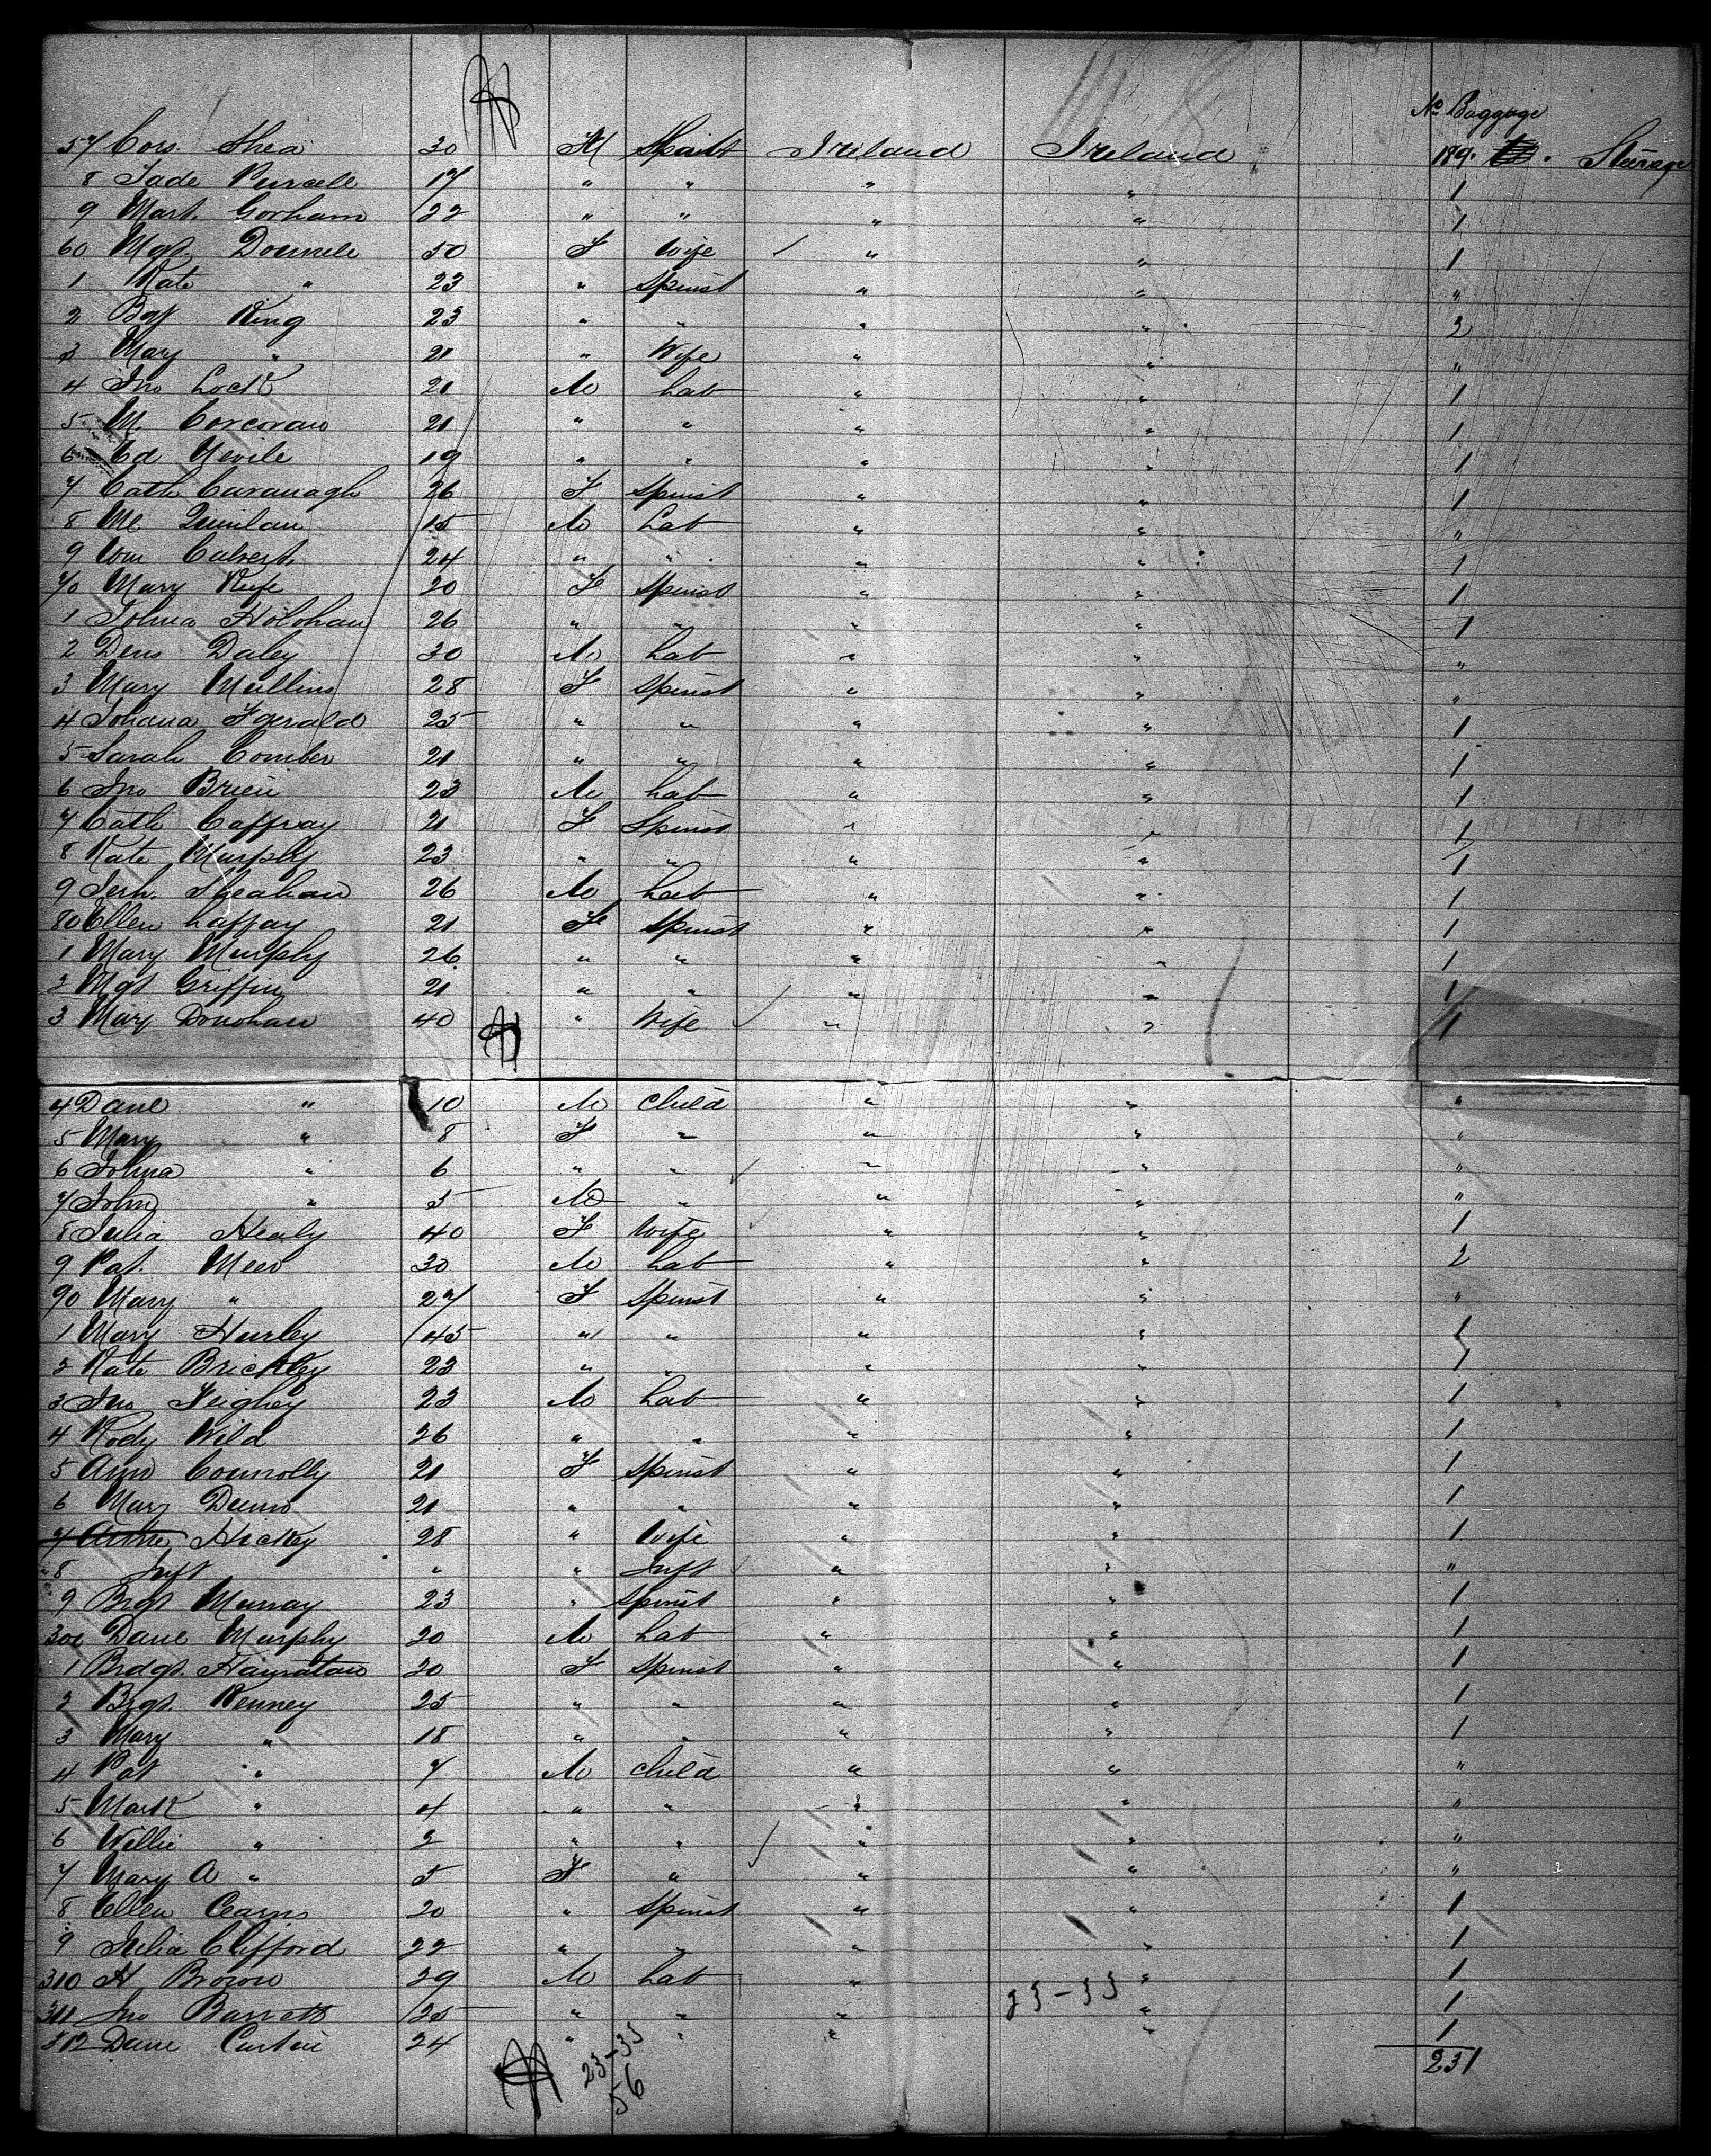 No Baggage
57 Cors. Shea 30 M Ireland Ireland 189. Steerage
8 Jade Purcell 17 " " " " 1
9 Mart. Gorham 22 " " " " 1
60 Mgt. Donnell 50 F Wife " " 1
1 Kate " 23 " Spinst " " "
2 Bgt King 23 " " " " 2
3 Mary " 21 " Wife " " "
4 Jno Lock 21 M Lab " " 1
5 M. Corcoran 21 " " " " 1
6 Ed Nevile 19 " " " " 1
7 Cath Cavanagh 26 F Spinst " " 1
8 Ml Quinlan 15 M Lab " " "
9 Wm Calvert 24 " " " " 1
70 Mary Kefe 20 F Spinst " " 1
1 Johna Holohan 26 " " " " 1
2 Dens Daley 30 M Lab " " "
3 Mary Mullins 28 F Spinst " " "
4 Johana Fgerald 25 " " " " 1
5 Sarah Comber 21 " " " " 1
6 Jno Brien 23 M Lab " " 1
7 Cath Caffray 21 F Spinst " " 1
8 Kate Murphy 23 " " " " 1
9 Jerh. Sheahan 26 M Lab " " 1
80 Ellen Laffay 21 F Spinst " " 1
1 Mary Murphy 26 " " " " 1
2 Mgt Griffin 21 " " " " 1
3 Mary Donohan 40 " Wife " " 1
4 Danl " 10 M Child " " "
5 Mary " 8 F " " " "
6 Johna " 6 " " " " "
7 John " 5 M " " " "
8 Julia Healy 40 F Wife " " 1
9 Pat. 30 M Lab " " 2
90 Mary " 27 F Spinst " " "
1 Mary Hurley 45 " " " " 1
2 Kate Brickley 23 " " " " 1
3 Jno Feighey 23 M Lab " " 1
4 Kody Wild 26 " " " " 1
5 Ann Connolly 21 F Spinst " " 1
6 Mary Dunn 21 " " " " 1
7 Hickey 28 " Wife " " 1
8 Inft " " Inft " " "
9 Brgt Murray 23 " Spinst " " 1
300 Danl Murphy 20 M Lab " " 1
1 Brdgt. Hanratan 20 F Spinst " " 1
2 Brgt. Kenney 25 " " " " 1
3 Mary " 18 " " " " 1
4 Pat " 7 M Child " " "
5 Mark " 4 " " " " "
6 Willie " 2 " " " " "
7 Mary A " 5 F " " " "
8 Ellen Cearns 20 " Spinst " " 1
9 Julia Clifford 22 " " " " 1
310 H Brown 29 M Lab " " 1
311 Jno Barrett 25 " " " 23-33 " 1
312 Danl Curtin 24 " " " " 1
23-33
56
231